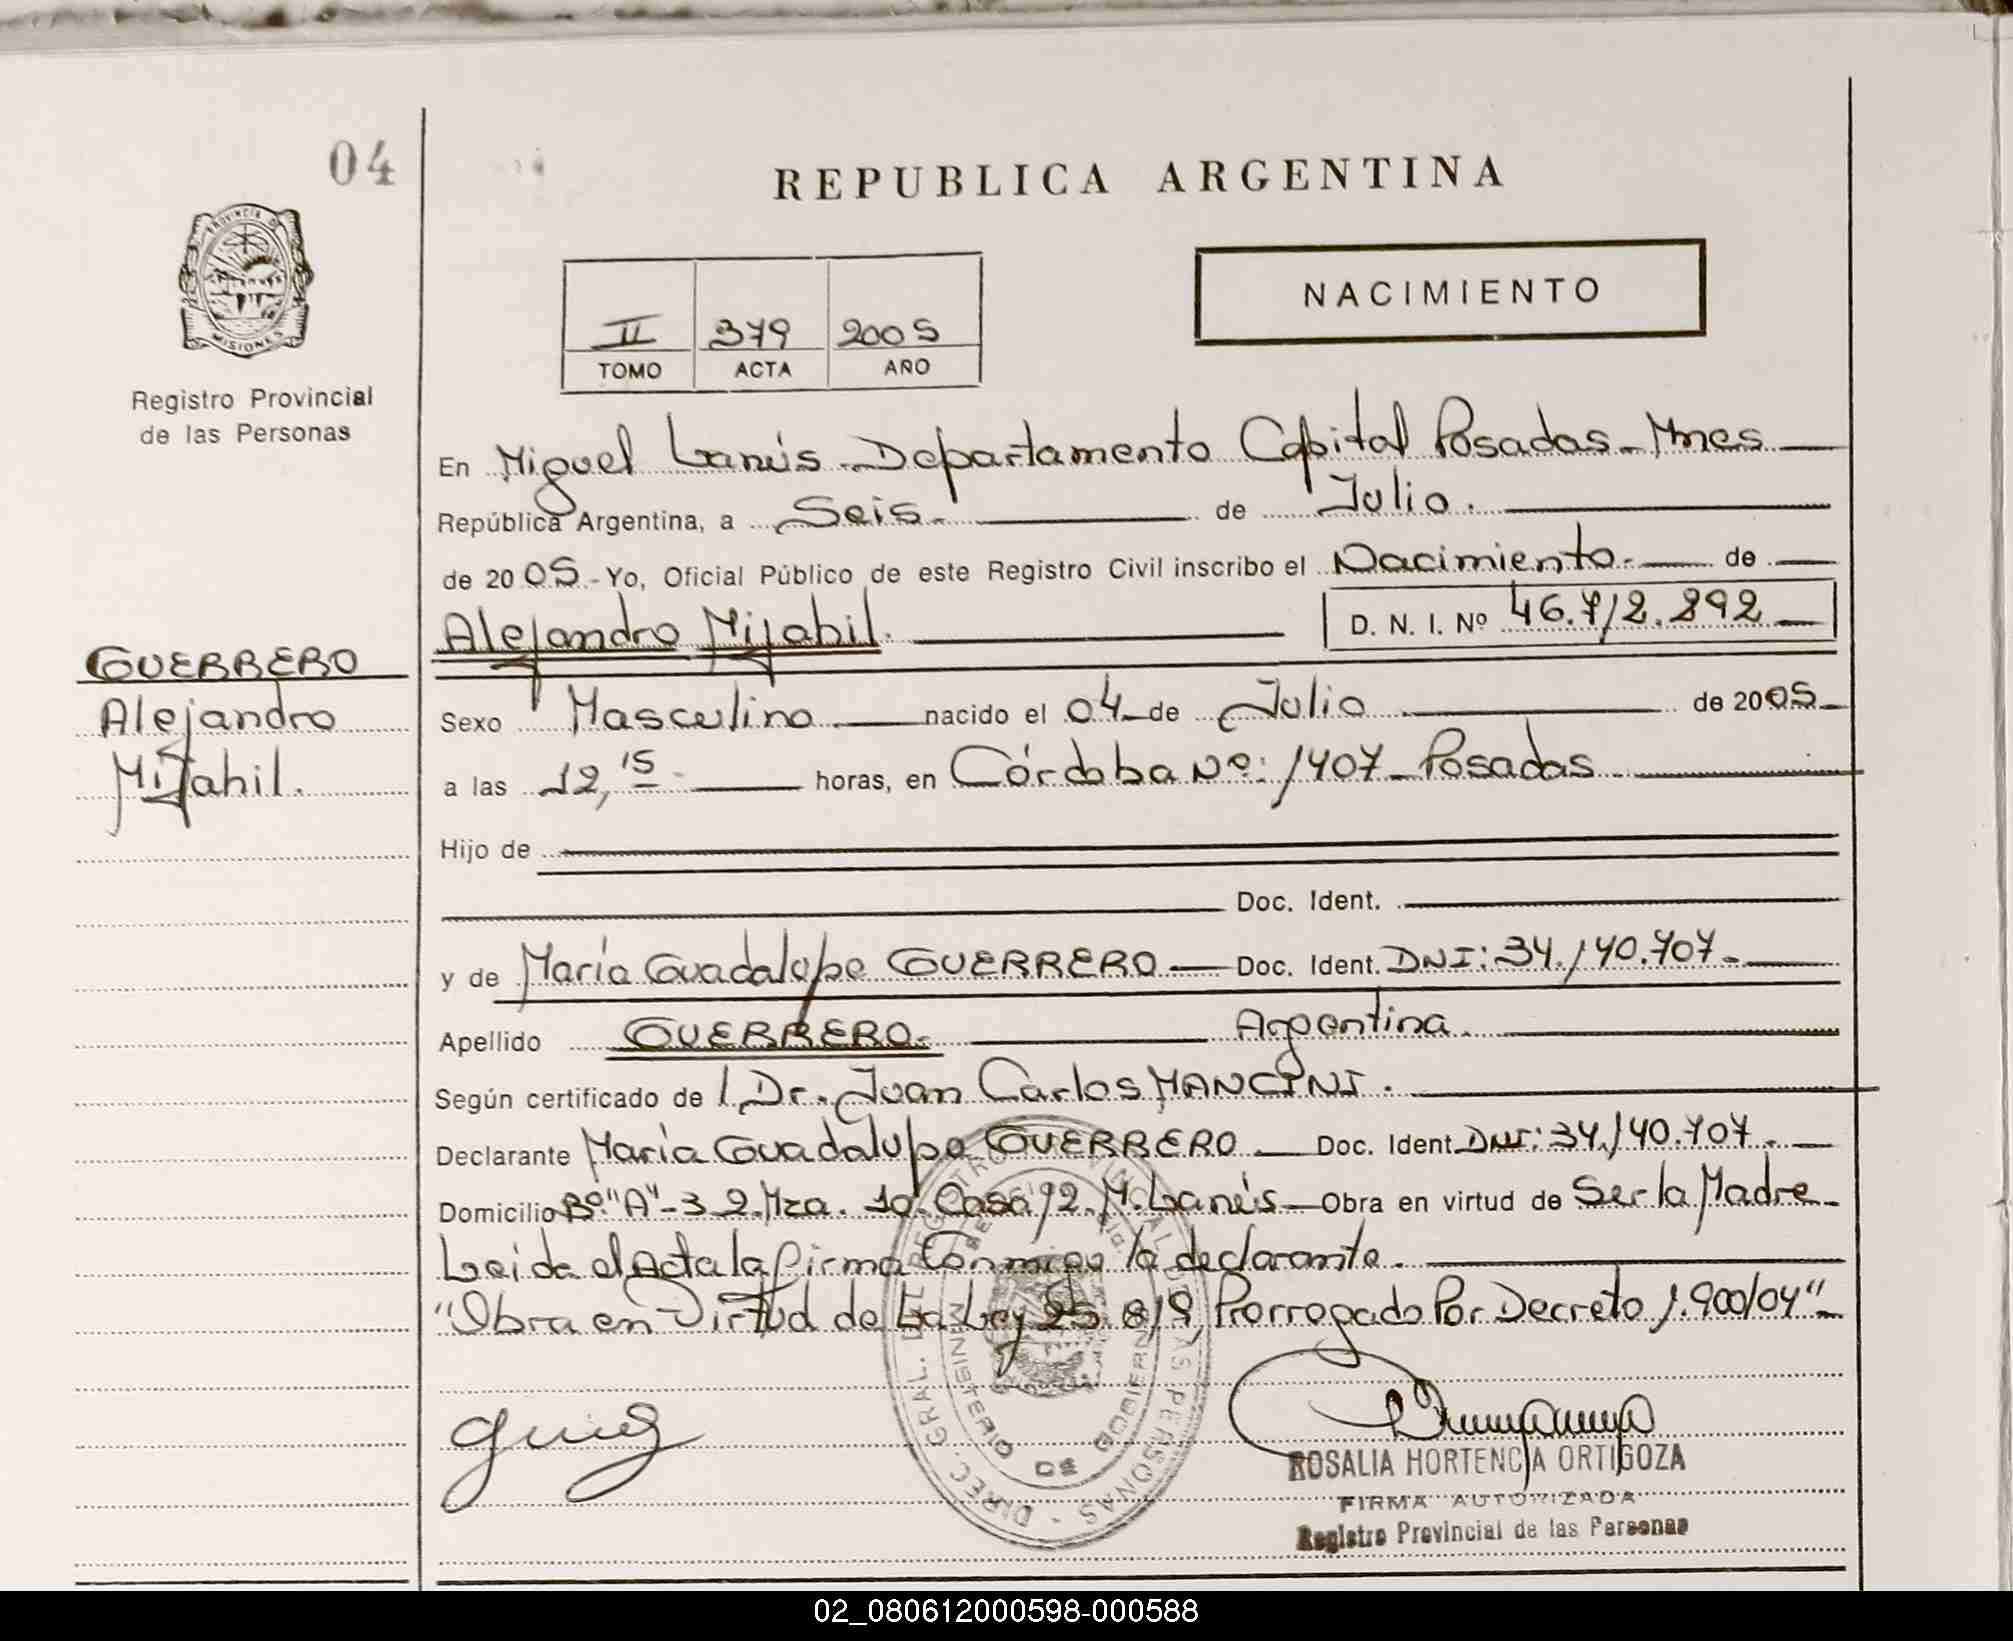 04
REPUBLICA ARGENTINA
NACIMIENTO
II 379 2005
TOMO ACTA AÑO
PROVINCIA DE MISIONES
Registro Provincial
de las Personas
En Miguel Lanús - Departamento Capital Posadas - Mnes
República Argentina, a Seis. de Julio.
de 2005.- Yo, Oficial Público de este Registro Civil inscribo el Nacimiento. de
Alejandro Mijahil. D. N. I. Nº 46.712.892
GUERRERO
Alejandro
Mijahil.
Sexo Masculino nacido el 04 de Julio de 2005
a las 12,15 horas, en Córdoba Nº: 1407 - Posadas
Hijo de
Doc. Ident.
y de María Guadalupe GUERRERO Doc. Ident. DNI: 34.140.707.-
Apellido GUERRERO. Argentina.
Según certificado de l Dr. Juan Carlos MANCINI.
Declarante María Guadalupe GUERRERO Doc. Ident. DNI: 34.140.707.
Domicilio Bº "A"-3 2. Mza. 10 Casa 92. M. Lanús - Obra en virtud de Ser la Madre
Leida el Acta la firma Conmigo la declarante.
"Obra en Virtud de La Ley 25.819 Prorrogado Por Decreto 1.900/04"
DIREC. GRAL. DEL REGISTRO PROVINCIAL DE LAS PERSONAS -
MINISTERIO DE GOBIERNO
ROSALIA HORTENCIA ORTIGOZA
FIRMA AUTORIZADA
Registro Provincial de las Personas
02_080612000598-000588